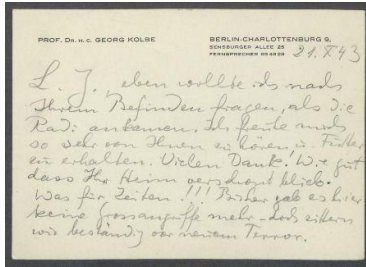 PROF. DR. H. C. GEORG KOLBE
BERLIN-CHARLOTTENBURG 9,
SENSBURGER ALLEE 25
FERNSPRECHER
21.X 43
L. J., eben wollte ich nach
Ihrem Befinden fragen, als die
Radi ankamen. Ich freute mich
so sehr von Ihnen zu hören, u.
zu erhalten. Vielen Dank! Wie gut
dass Ihr Heim verschont blieb.
Was für Zeiten!!! Bisher gab es hier
keine Grossangriffe mehr – doch zittern
wir beständig vor neuem Terror.